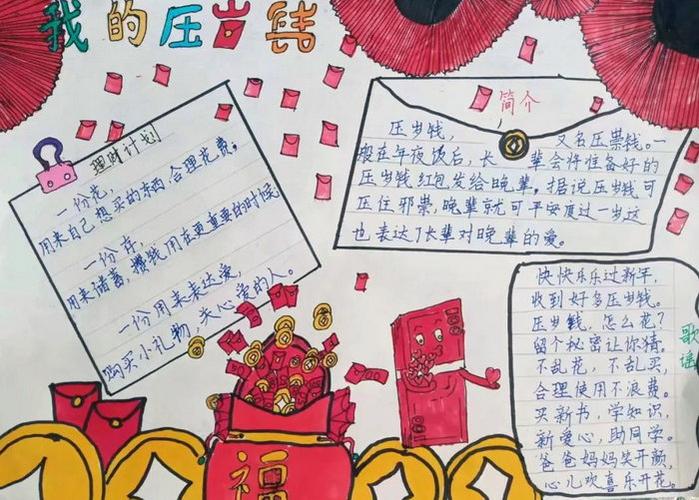 我的压岁钱
理财计划
一份花,
用来自己想买的东西,合理花费。
一份存,
用来储蓄,攒钱用在更重要的时候
一份用来表达爱,
购买小礼物,关心爱的人。
简介
压岁钱, 又名压祟钱。一
般在年夜饭后,长 辈会将准备好的
压岁钱红包发给晚辈。据说压岁钱可
压住邪祟,晚辈就可平安度过一岁这
也表达了长辈对晚辈的爱。
歌谣
快快乐乐过新年,
收到好多压岁钱。
压岁钱,怎么花?
留个秘密让你猜。
不乱花,不乱买,
合理使用不浪费。
买新书,学知识,
新爱心,助同学。
爸爸妈妈笑开颜
心儿欢喜乐开花。
福